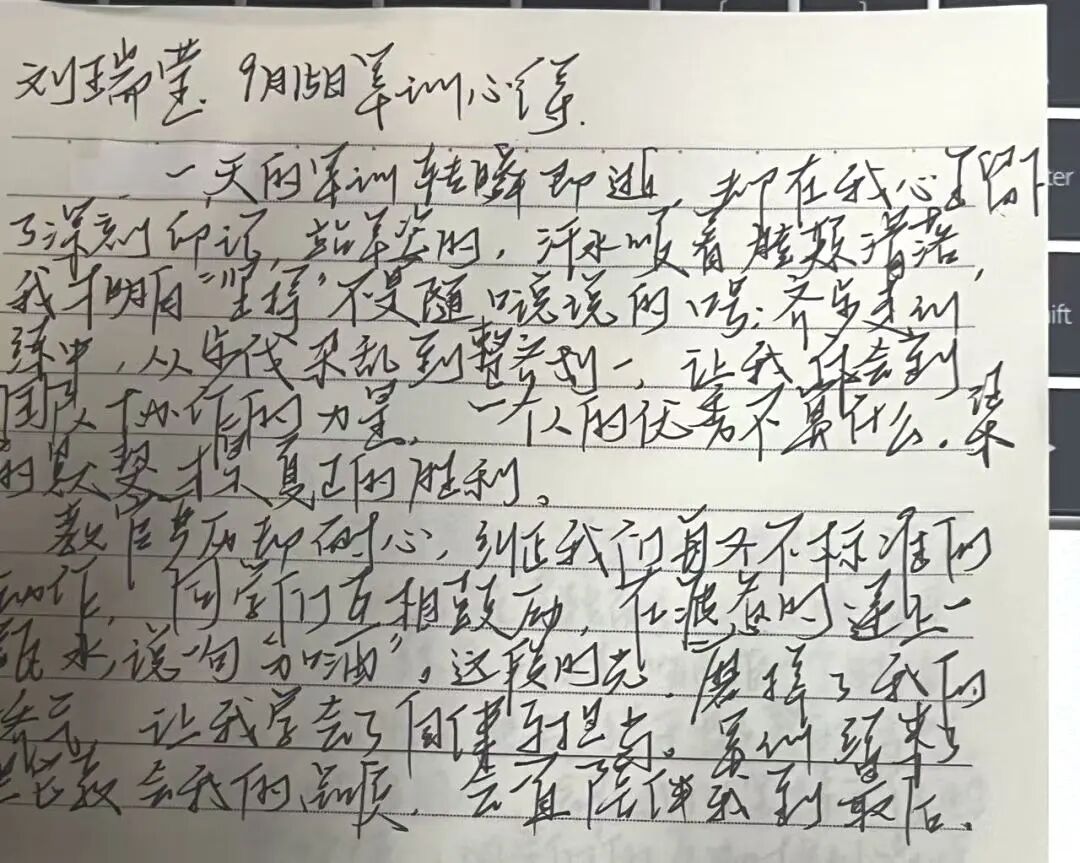 刘瑞莹. 9月15日军训心得.
一天的军训转瞬即逝, 却在我心里留下
了深刻印记, 站军姿时, 汗水顺着脸颊滑落,
我才明白"坚持"不是随口说说的口号; 齐步走训
练中, 从步伐杂乱到整齐划一, 让我体会到
团队协作的力量, 一个人的优秀不算什么, 集
的默契才是真正的胜利。
教官严厉却耐心, 纠正我们每个不标准的
动作, 同学们互相鼓励, 在疲惫时递上一
瓶水, 说一句"加油"。这段时光, 磨掉了我的
娇气, 让我学会了自律与担当。军训结束了
但教会我的品质, 会一直陪伴我到最后.
ter
ift